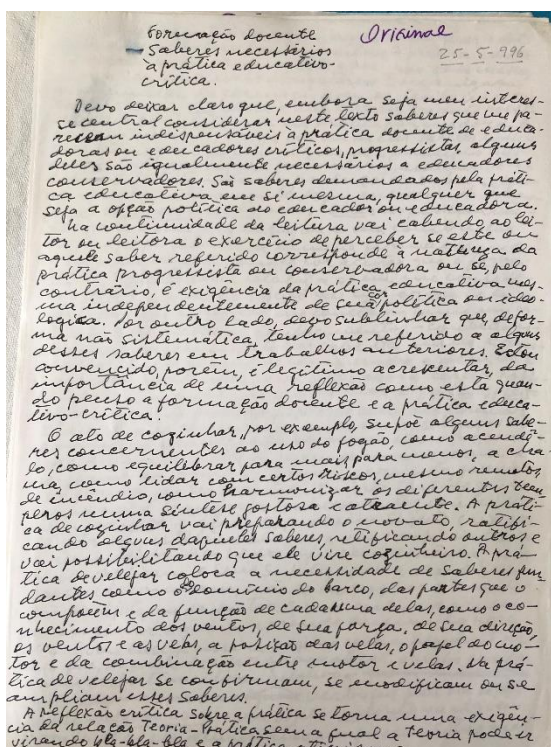 Formação docente
Saberes necessários
à prática educativo-
crítica.
Original
25-5-996
Devo deixar claro que, embora seja meu interes-
se central considerar neste texto saberes que me pa-
recem indispensáveis à prática docente de educa-
doras ou educadores críticos, progressistas, alguns
deles são igualmente necessários a educadores
conservadores. São saberes demandados pela práti-
ca educativa em si mesma, qualquer que
seja a opção política do educador ou educadora.
Na continuidade da leitura vai cabendo ao lei-
tor ou leitora o exercício de perceber se este ou
aquele saber referido corresponde à natureza da
prática progressista ou conservadora ou se, pelo
contrário, é exigência da prática educativa mes-
ma independentemente de sua cor política ou ideo-
logica. Por outro lado, devo sublinhar que, de for-
ma não sistemática, tenho me referido a alguns
desses saberes em trabalhos anteriores. Estou
convencido, porém, é legítimo acrescentar, da
importância de uma reflexão como esta quan-
do penso a formação docente e a prática educa-
tivo-crítica.
O ato de cozinhar, por exemplo, supõe alguns sabe-
res concernentes ao uso do fogão, como acendê-
lo, como equilibrar para mais, para menos, a cha-
ma, como lidar com certos riscos, mesmo remotos
de incêndio, como harmonizar os diferentes tem
peros numa síntese gostosa e atraente. A práti-
ca de cozinhar vai preparando o novato, ratifi-
cando alguns daqueles saberes, retificando outros e
vai possibilitando que ele vire cozinheiro. A prá-
tica de velejar coloca a necessidade de saberes fun
dantes como o do domínio do barco, das partes que o
compõem e da função de cada uma delas, como o co-
nhecimento dos ventos, de sua força, de sua direção,
os ventos e as velas, a posição das velas, o papel do mo-
tor e da combinação entre motor e velas. Na prá-
tica de velejar se confirmam, se modificam ou se
ampliam esses saberes.
A reflexão crítica sobre a prática se torna uma exigên-
cia da relação Teoria-Prática sem a qual a Teoria pode ir
virando bla-bla-bla e a prática